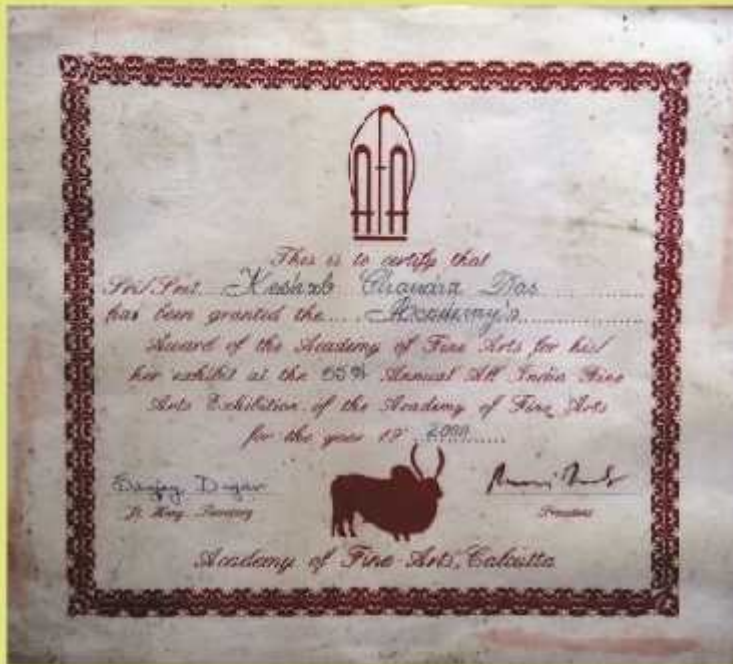 This is to certify that
Sri/Smt. Keshab Chandra Das
has been granted the .... Academy's
Award of the Academy of Fine Arts for his/
her exhibit at the Annual All India Fine
Arts Exhibition of the Academy of Fine Arts
for the year 19 2000
Sanjay
President
Academy of Fine Arts, Calcutta